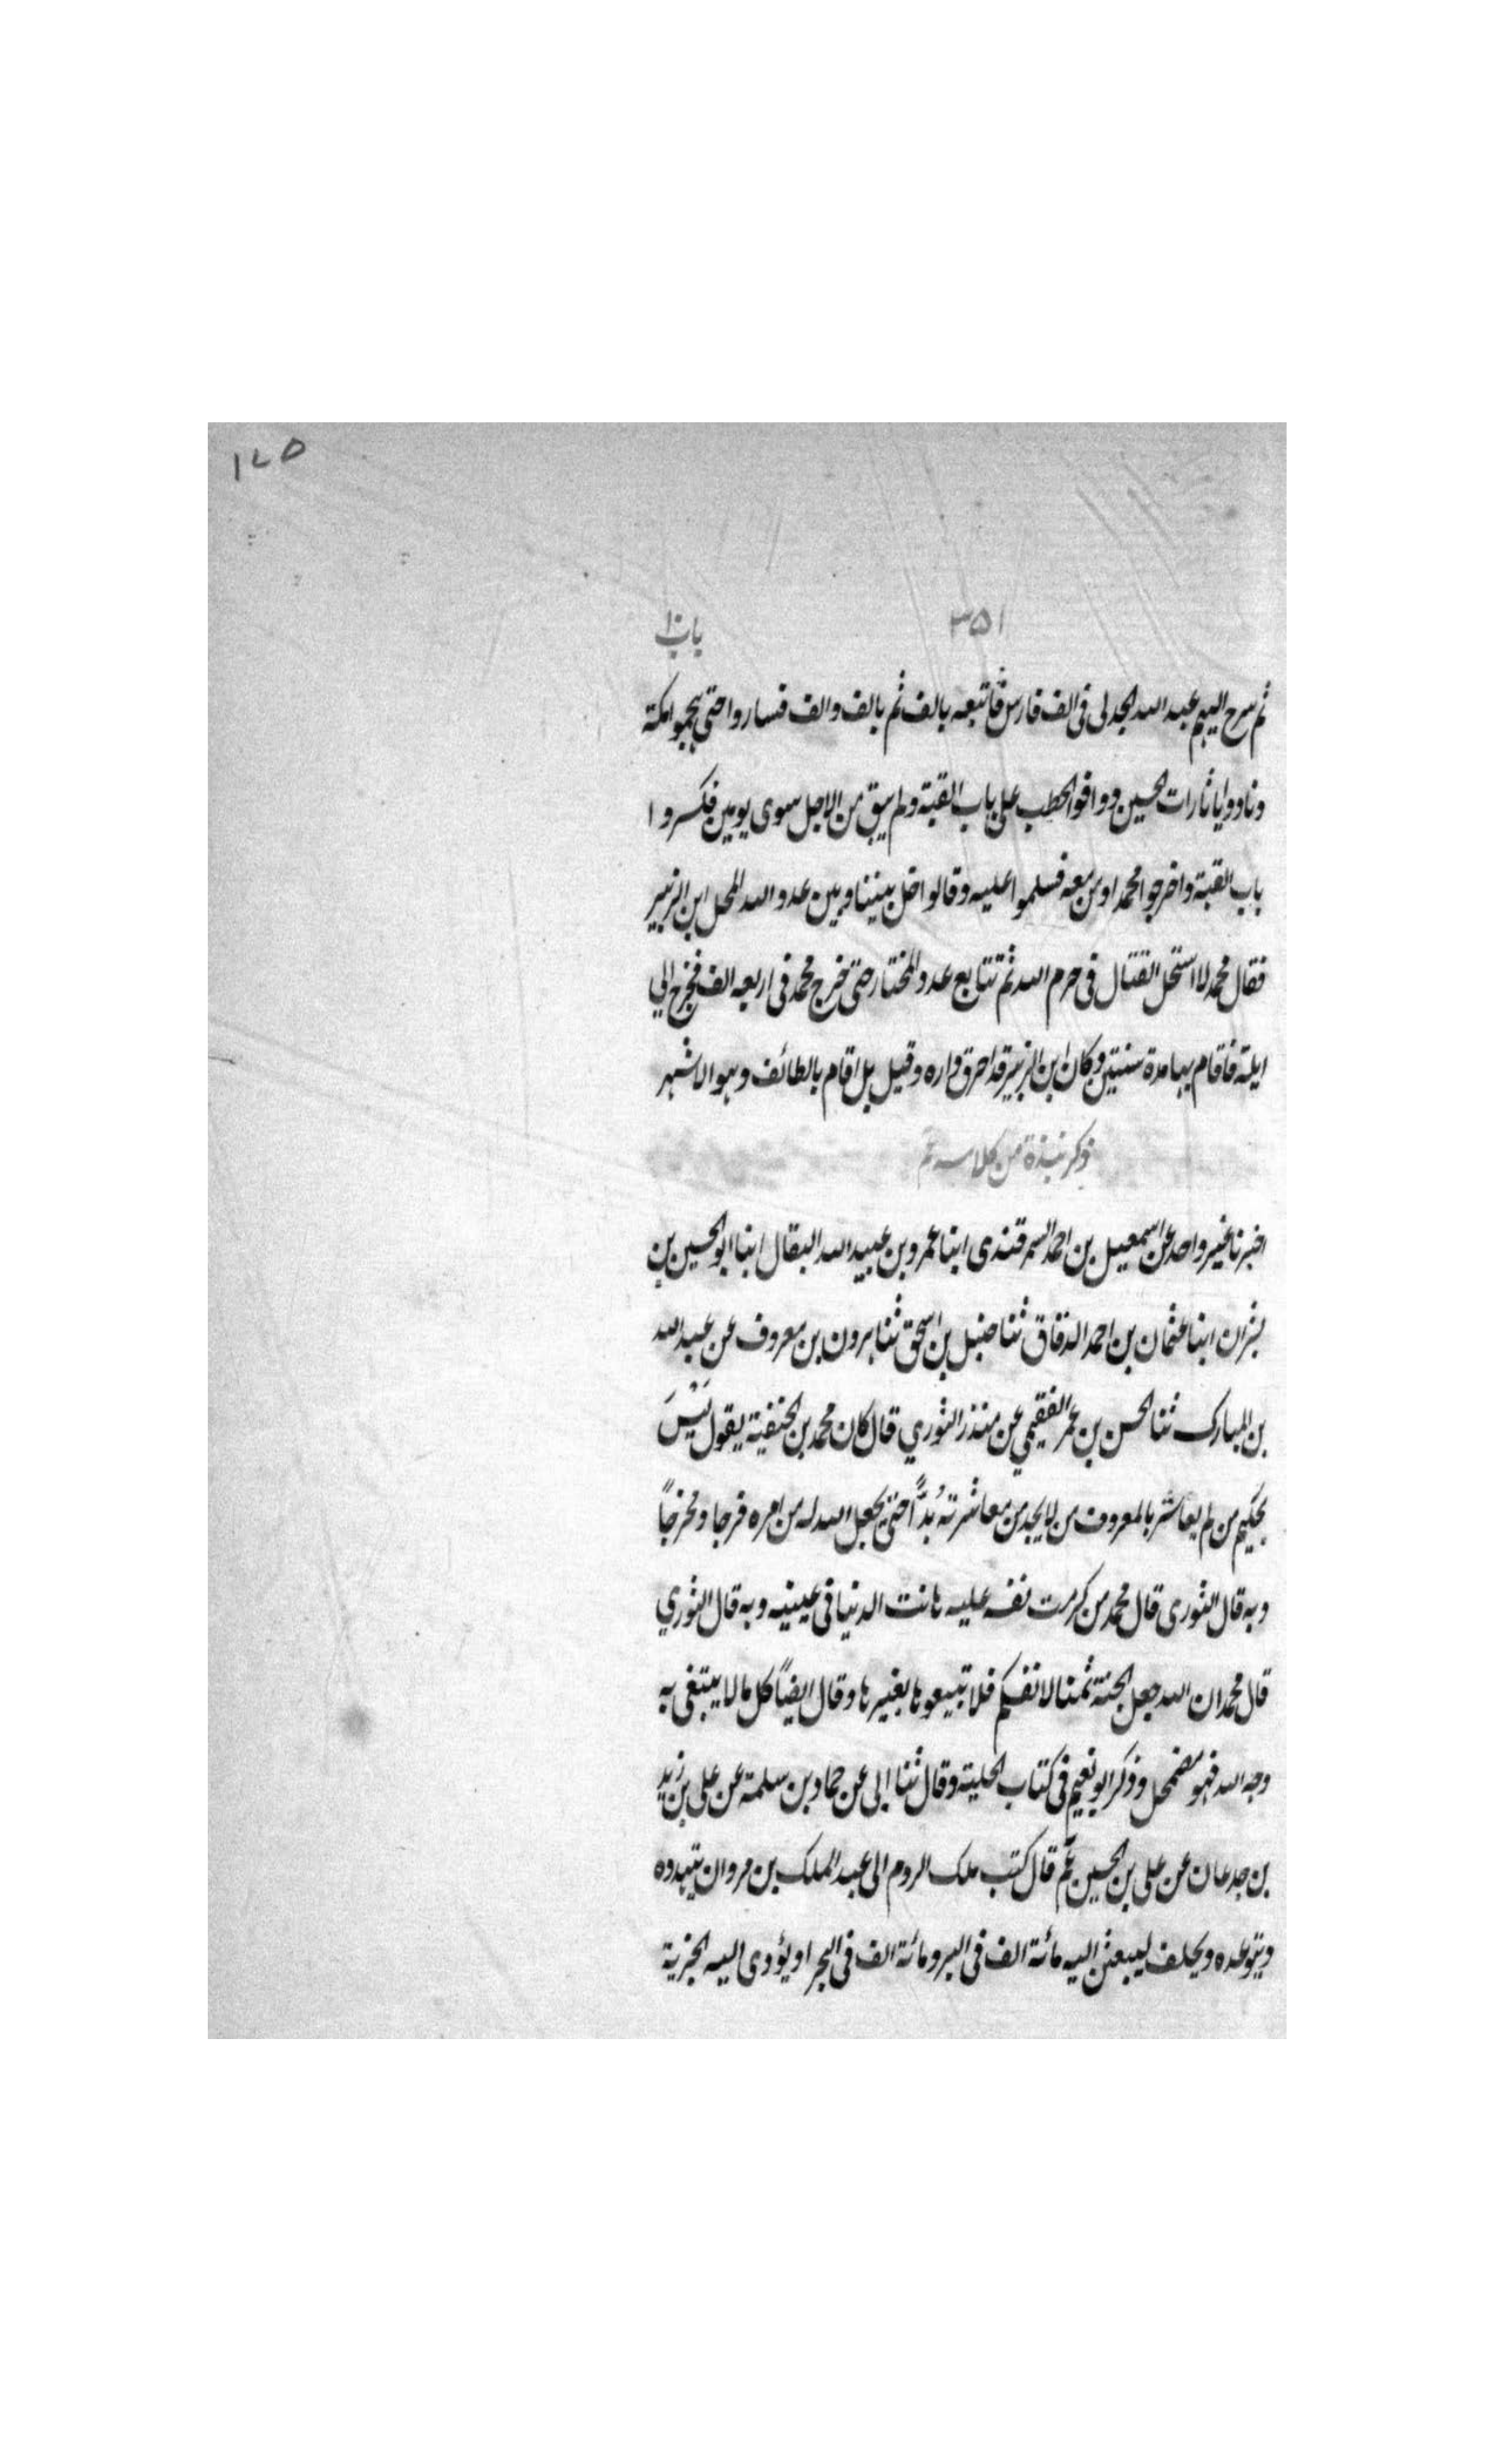 ١٧٥
٣٥١
باب ١٠
ثم سرح اليهم عبد الله الجدلى فى الف فارس فاتبعه بالف ثم بالف والف فساروا حتى هجموا مكة
ونادوا يا ثارات الحسين ووافوا الحطب على باب القبة ولم يبق من الاجل سوى يومين فكسروا
باب القبة واخرجوا محمدا ومن معه فسلموا عليه وقالوا خل بيننا وبين عدو الله المحل ابن الزبير
فقال محمد لا استحل القتال فى حرم الله ثم تتابع عدد المختار حتى خرج محمد فى اربعه الف فخرج الي
ايلة فاقام بها مدة سنتين وكان ابن الزبير قد احرق داره وقيل بل اقام بالطائف وهو الاشهر
ذكر نبذة من كلامه عم
اخبرنا غير واحد عن اسمعيل بن احمد السمرقندى ابنا عمرو بن عبيد الله البقال ابنا ابو الحسين بن
بشران ابنا عثمان بن احمد الدقاق ثنا حنبل بن اسحق ثنا هرون بن معروف عن عبد الله
بن المبارك ثنا الحسن بن عمر الفقيمي عن منذر الثوري قال كان محمد بن الحنفية يقول لَيْسَ
بحكيم من لم يعاشر بالمعروف من لا يجد من معاشرته بُدًّا حتى يجعل الله له من امره فرجا ومخرجاً
وبه قال الثورى قال محمد من كرمت نفسه عليه هانت الدنيا فى عينيه وبه قال الثوري
قال محمد ان الله جعل الجنة ثمنا لانفسكم فلا تبيعوها بغيرها وقال ايضاً كل ما لا يبتغى به
وجه الله فهو مضمحل وذكر ابو نعيم فى كتاب الحلية وقال ثنا ابى عن حماد بن سلمة عن على بن زيد
بن جدعان عن على بن الحسين عم قال كتب ملك الروم الى عبد الملك بن مروان يتهدده
ويتوعده ويحلف ليبعثن اليه مائة الف فى البر ومائة الف فى البحر او يؤدى اليه الجزية